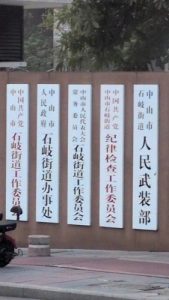 中国共产党
中山市
石岐街道工作委员会
中山市
人民政府
石岐街道办事处
中山市人民代表大会
常务委员会
石岐街道工作委员会
中国共产党
中山市石岐街道
纪律检查工作委员会
中山市
石岐街道
人民武装部